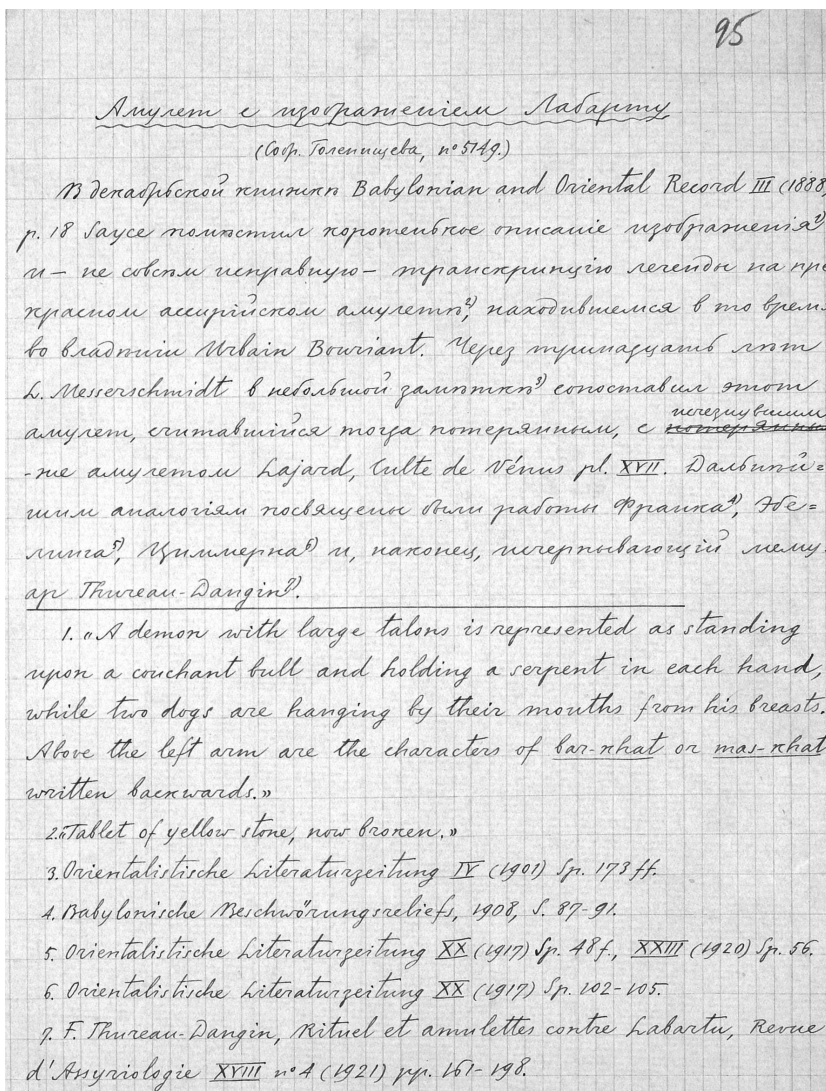 95
Амулет с изображением Лабарту
(Собр. Голенищева, nº 5149.)
В декабрьской книжкѣ Babylonian and Oriental Record III (1888,
p. 18 Sayce помѣстил коротенькое описание изображения¹⁾
и — не совсѣм исправную — транскрипцію легенды на пре
красном ассирійском амулетѣ²⁾, находившемся в то врем
во владѣнии Urbain Bouriant. Через тринадцать лѣт
L. Messerschmidt в небольшой замѣткѣ³⁾ сопоставил этот
исчезнувшим
амулет, считавшійся тогда потерянным, с потерянны
-же амулетом Lajard, Culte de Vénus pl. XVII. Дальнѣй=
шим аналогіям посвящены были работы Франка⁴⁾, Эбе=
линга⁵⁾, Циммерна⁶⁾ и, наконец, исчерпывающій мему
ар Thureau-Dangin⁷⁾.
1. «A demon with large talons is represented as standing
upon a couchant bull and holding a serpent in each hand,
while two dogs are hanging by their mouths from his breasts.
Above the left arm are the characters of bar-khat or mas-khat
written backwards.»
2. «Tablet of yellow stone, now broken.»
3. Orientalistische Literaturzeitung IV (1901) Sp. 173 ff.
4. Babylonische Beschwörungsreliefs, 1908, S. 87-91.
5. Orientalistische Literaturzeitung XX (1917) Sp. 48f., XXIII (1920) Sp. 56.
6. Orientalistische Literaturzeitung XX (1917) Sp. 102-105.
7. F. Thureau-Dangin, Rituel et amulettes contre Labartu, Revue
d'Assyriologie XVIII nº 4 (1921) pp. 161-198.